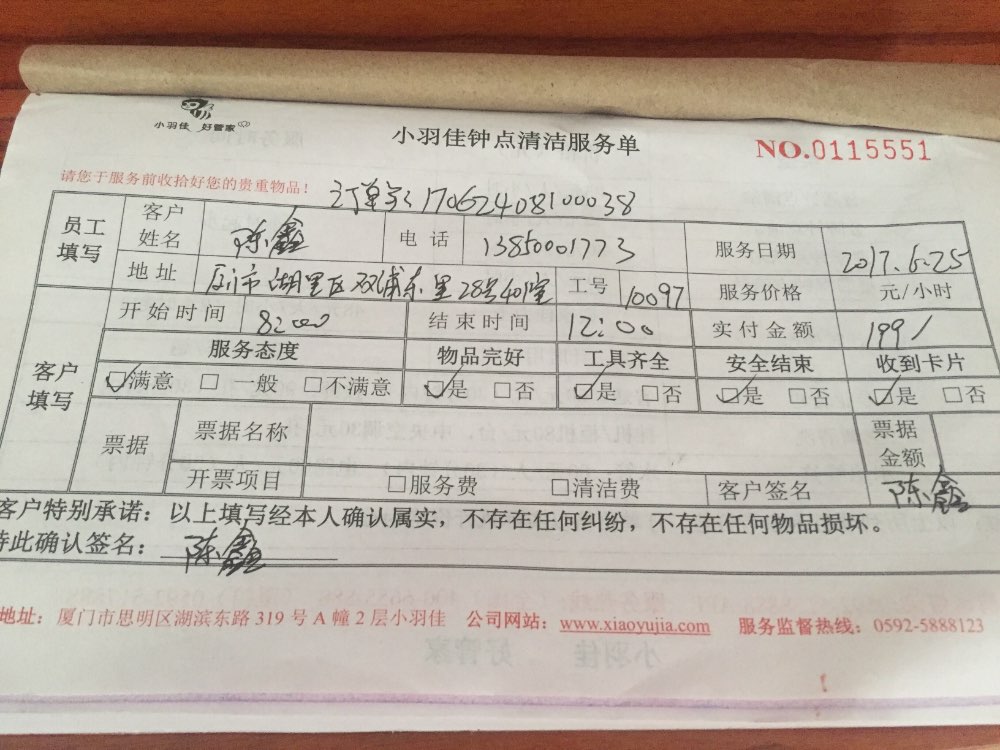 小羽佳 好管家
小羽佳钟点清洁服务单 NO.0115551
请您于服务前收拾好您的贵重物品! 订单号:17062408100038
员工填写 客户姓名 陈鑫 电话 13850001773 服务日期 2017.6.25
地址 厦门市湖里区双浦东里28号401室 工号 10097 服务价格 元/小时
开始时间 8:00 结束时间 12:00 实付金额 199/
客户填写 服务态度 物品完好 工具齐全 安全结束 收到卡片
☑满意 □一般 □不满意 ☑是 □否 ☑是 □否 ☑是 □否 ☑是 □否
票据 票据名称 票据金额
开票项目 □服务费 □清洁费 客户签名 陈鑫
客户特别承诺:以上填写经本人确认属实,不存在任何纠纷,不存在任何物品损坏。
特此确认签名: 陈鑫
地址:厦门市思明区湖滨东路 319 号 A 幢 2 层小羽佳 公司网站:www.xiaoyujia.com 服务监督热线:0592-5888123